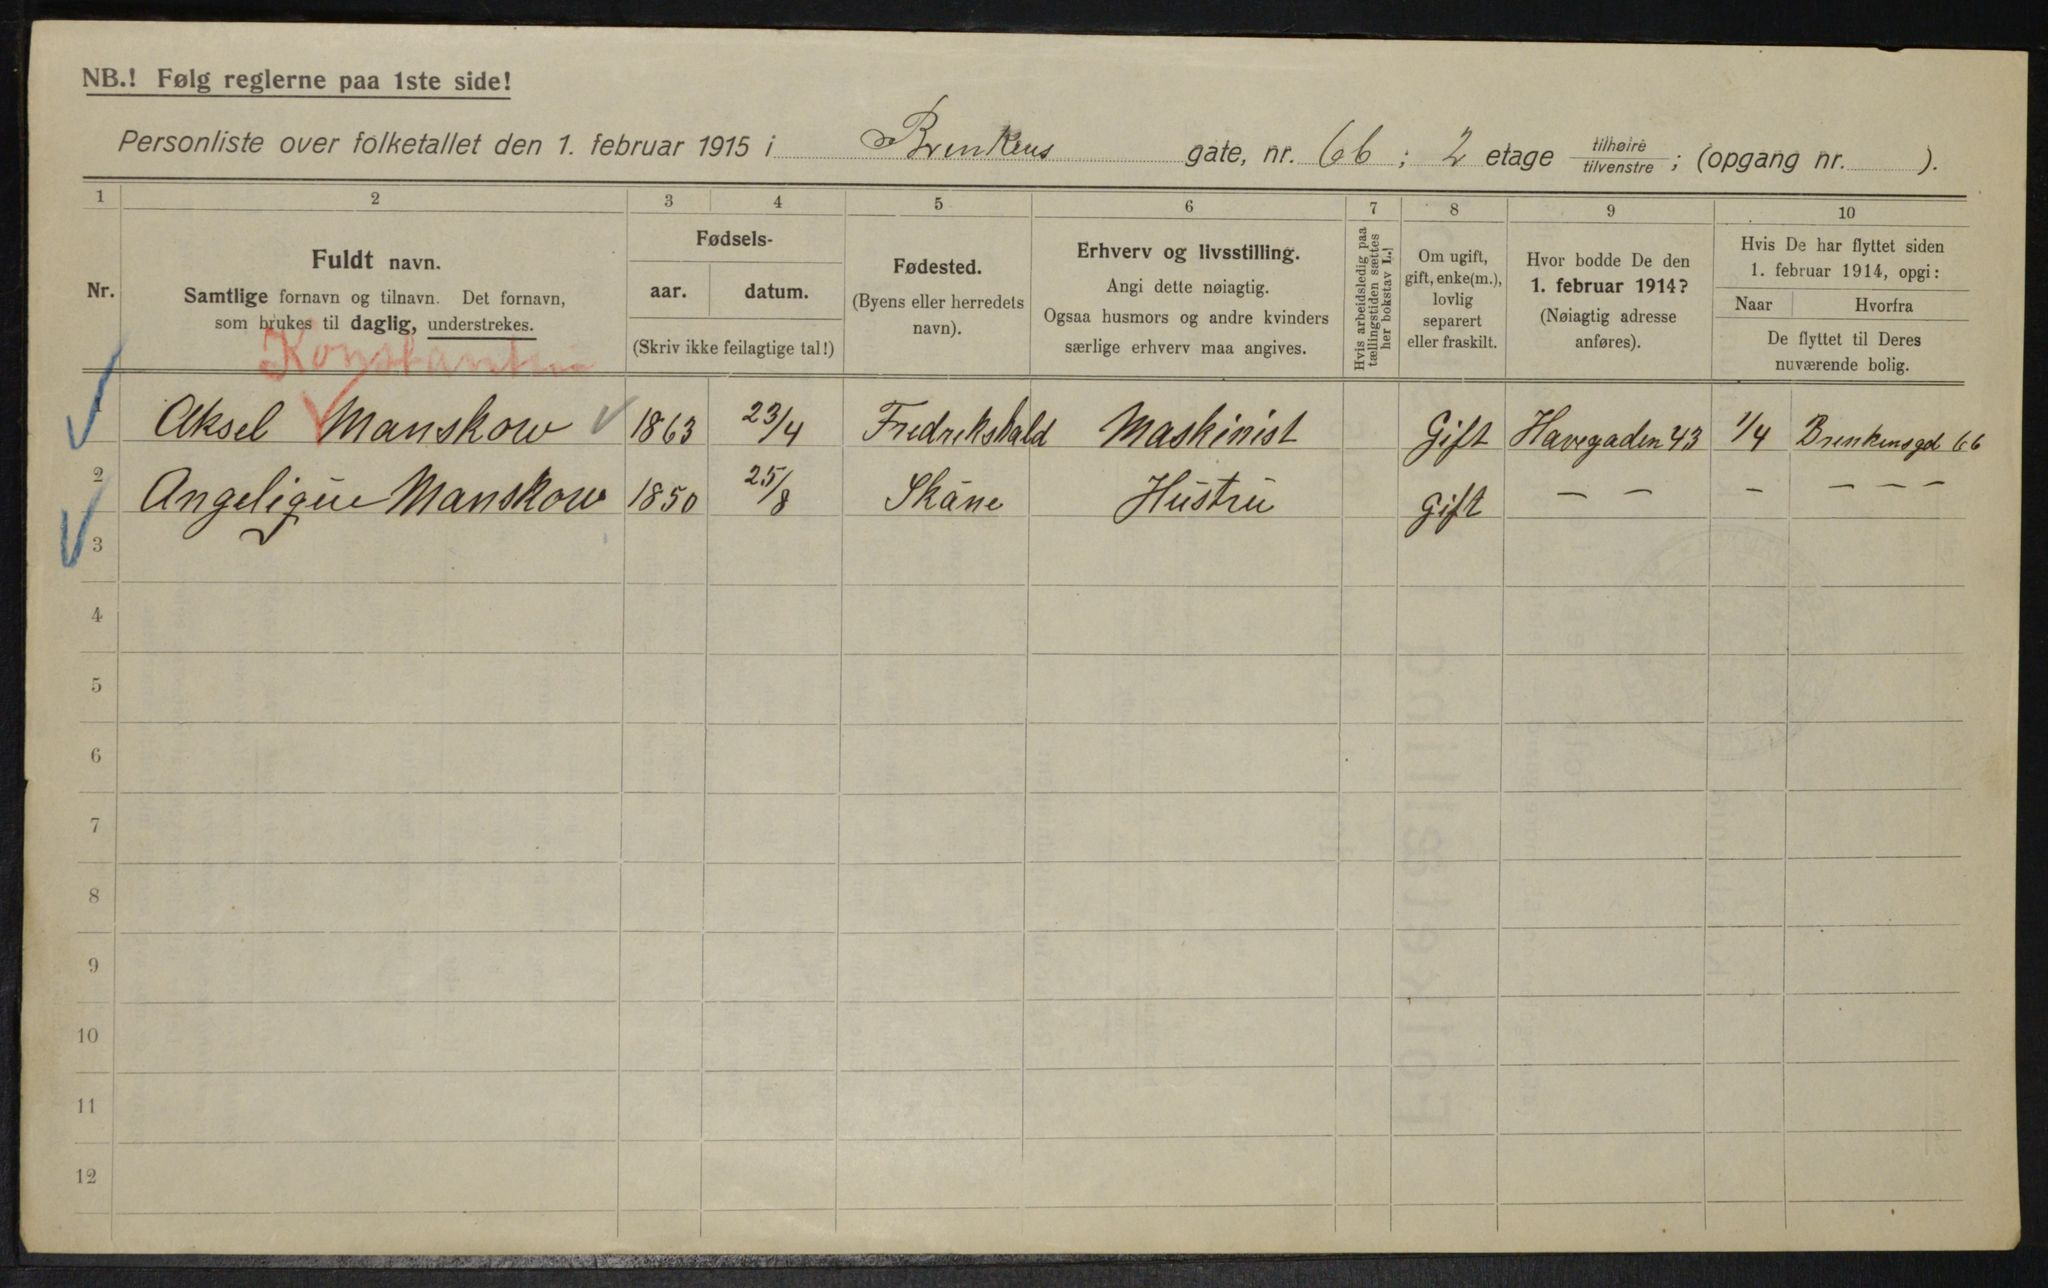 NB.! Følg reglerne paa 1ste side!
Personliste over folketallet den 1. februar 1915 i Brenkens gate, nr. 66 ; 2 etage tilhøire tilvenstre ; (opgang nr. ).
1 2 3 4 5 6 7 8 9 10
Nr.
Fuldt navn.
Samtlige fornavn og tilnavn. Det fornavn,
som brukes til daglig, understrekes.
Fødsels-
aar. datum.
(Skriv ikke feilagtige tal!)
Fødested.
(Byens eller herredets
navn).
Erhverv og livsstilling.
Angi dette nøiagtig.
Ogsaa husmors og andre kvinders
særlige erhverv maa angives.
Hvis arbeidsledig paa
tællingstiden sættes
her bokstav L.!
Om ugift,
gift, enke(m.),
lovlig
separert
eller fraskilt.
Hvor bodde De den
1. februar 1914?
(Nøiagtig adresse
anføres).
Hvis De har flyttet siden
1. februar 1914, opgi:
Naar Hvorfra
De flyttet til Deres
nuværende bolig.
Konstantin
1 Aksel Manskow 1863 23/4 Fredrikshald Maskinist Gift Havegaden 43 1/4 Brenkensgd 66
2 Angelique Manskow 1850 25/8 Skåne Hustru Gift — — — — — —
3
4
5
6
7
8
9
10
11
12